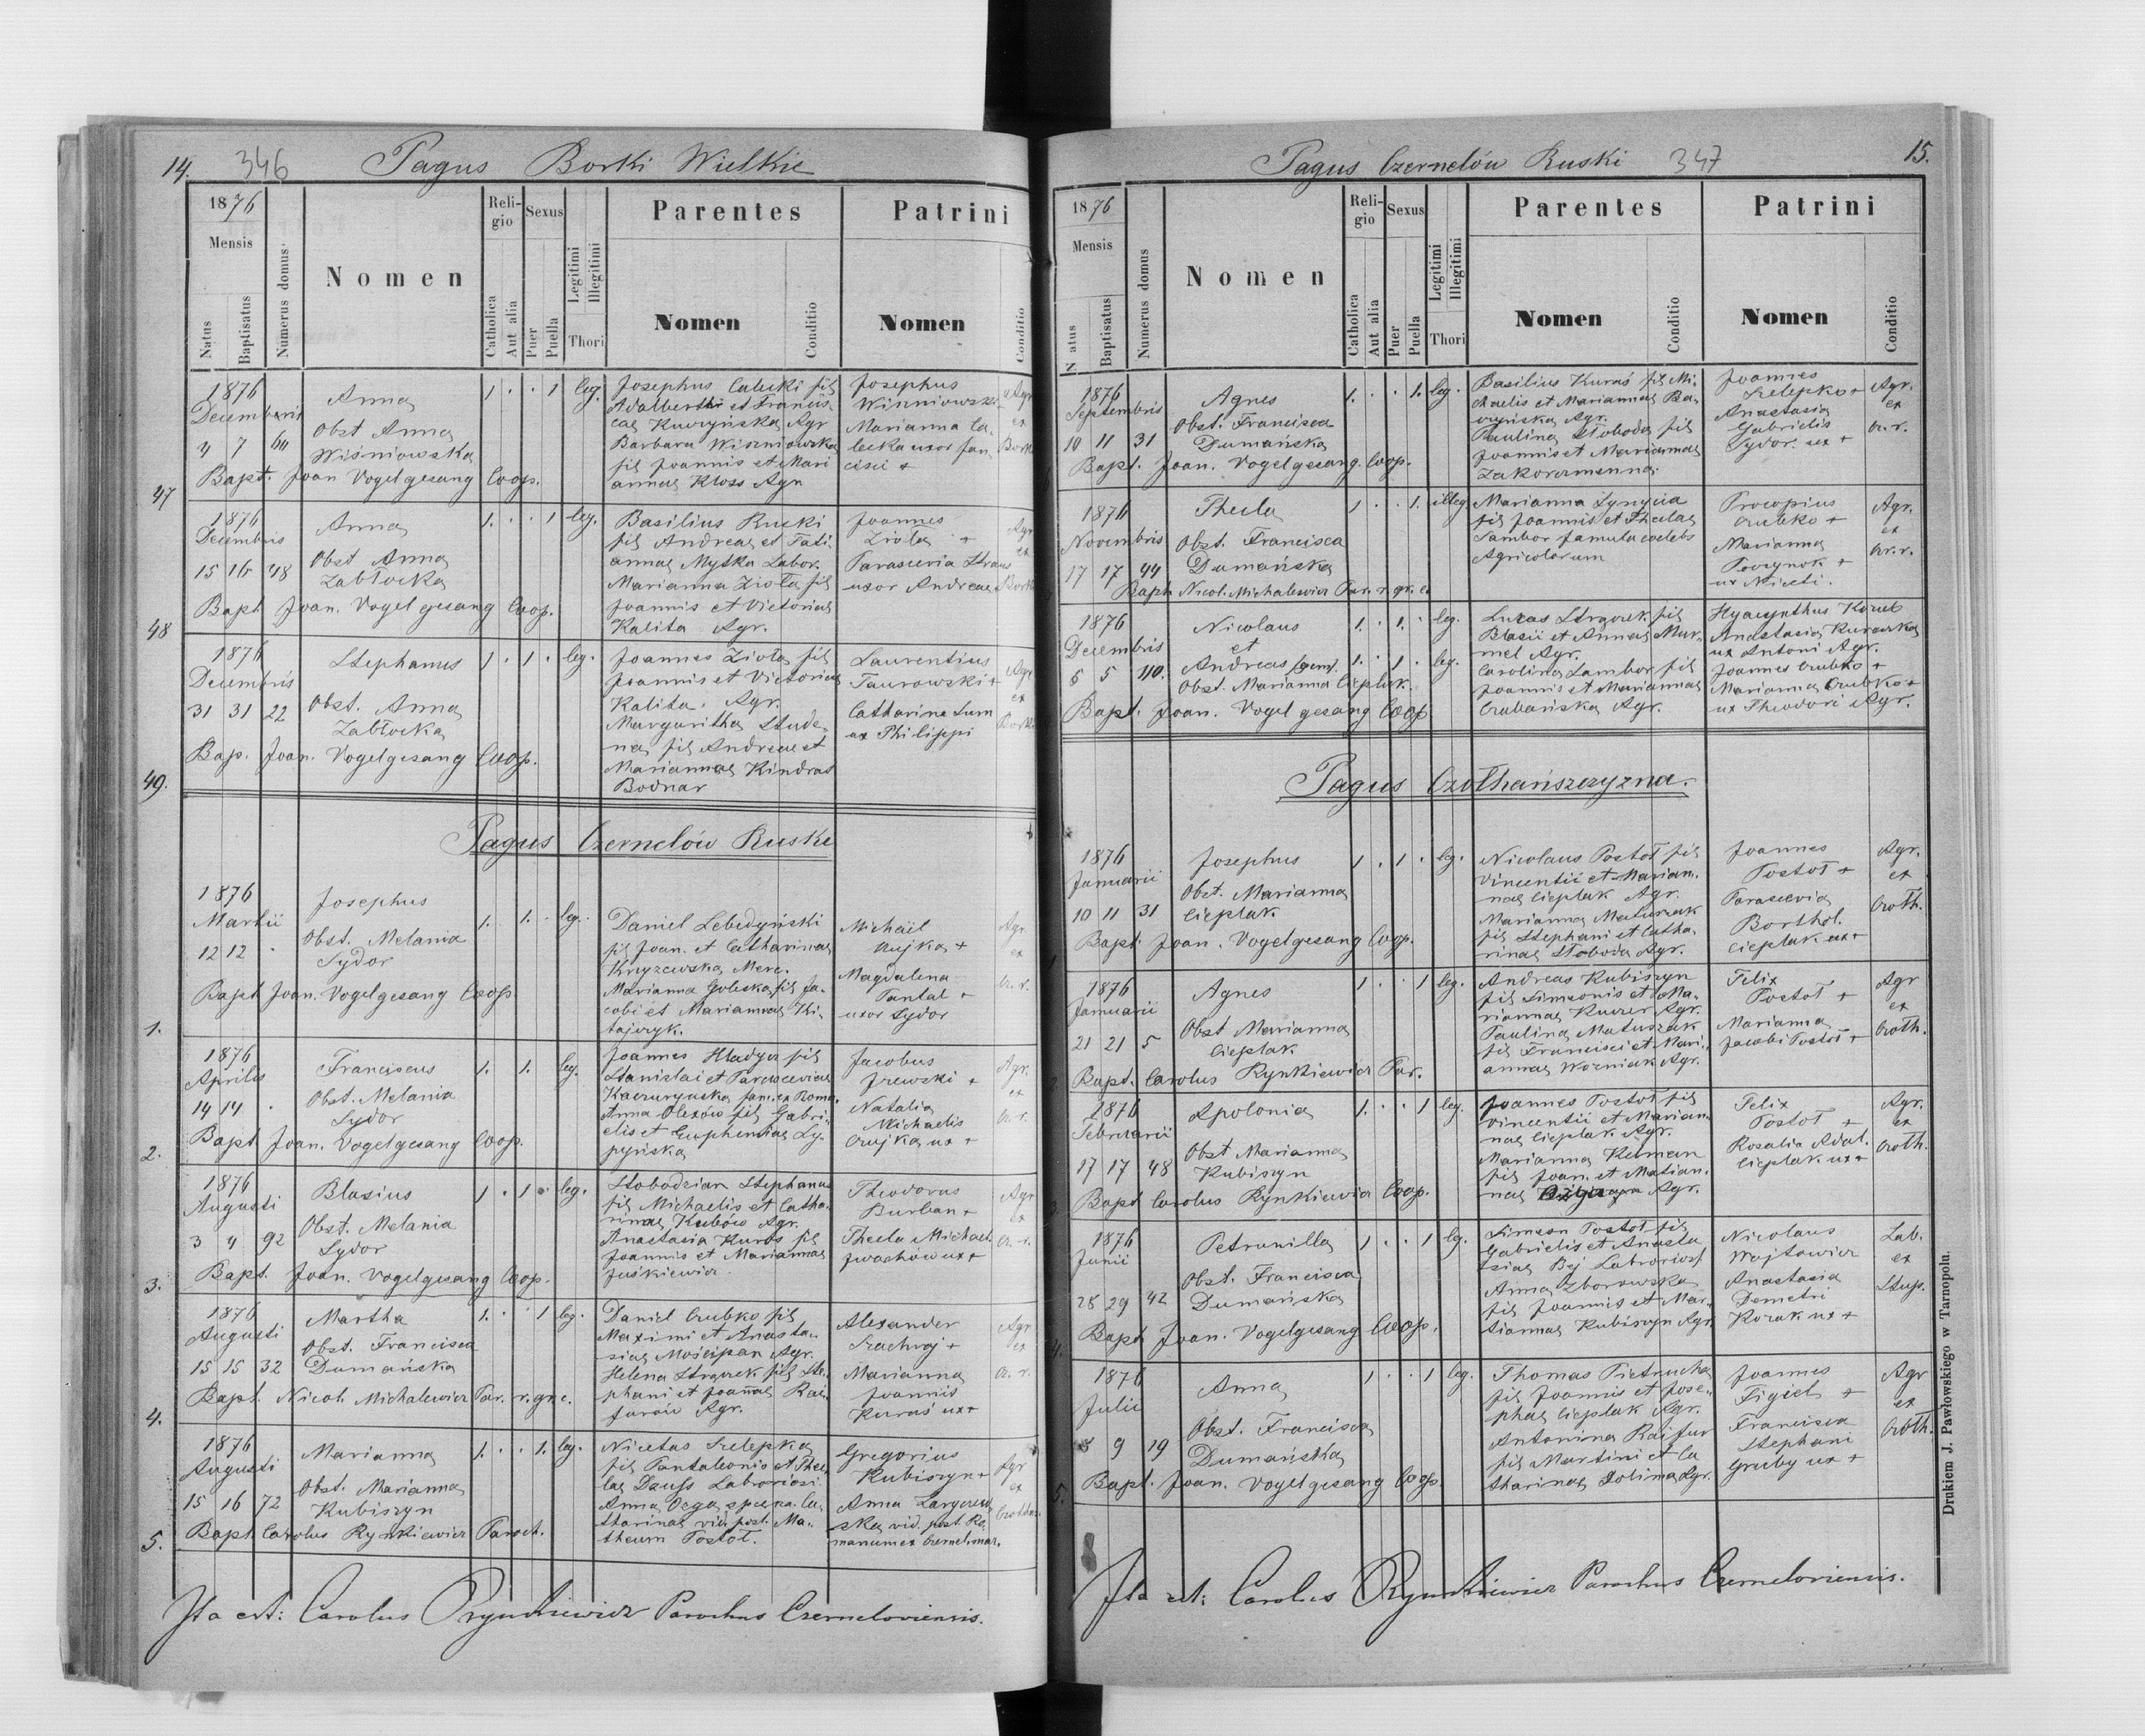 14. 346 Pagus Borki Wielkie
1876
Mensis
Natus
Baptisatus
Numerus domus
Nomen
Religio
Catholica
Aut alia
Sexus
Puer
Puella
Legitimi
Illegitimi
Thori
Parentes
Nomen
Conditio
Patrini
Nomen
Conditio
47
1876
Decembris
4 7 60
Anna
Obst Anna
Wiśniowska
Bapt. Joan Vogelgesang Coop.
1 . . 1 leg.
Josephus Calecki fil
Adalberti et Francis-
cae Kuczyńska Agr
Barbara Wiśniowska
fil Joannis et Mari
annae Kloss Agr
Josephus
Wiśniowski
Marianna Ca-
lecka uxor Fran-
cisci +
Agr
ex
Bork
48
1876
Decembris
15 16 48
Anna
Obst Anna
Zabłocka
Bapt Joan. Vogelgesang Coop.
1. . . 1 leg.
Basilius Ruski
fil Andreae et Tati-
annae Myśka Labor.
Marianna Zioła fil
Joannis et Victoriae
Kalita Agr.
Joannes
Zioła +
Parascevia Straus
uxor Andreae +
Agr
ex
Bork
49.
1876
Decembris
31 31 22
Stephanus
Obst. Anna
Zabłocka
Bap. Joan. Vogelgesang Coop.
1 . 1 . leg.
Joannes Zioła fil
Joannis et Victoriae
Kalita. Agr.
Margaritha Stude-
na fil Andreae et
Mariannae Kindrat
Bodnar
Laurentius
Taurowski +
Catharina Sum
ux Philippi
Agr
ex
Bork
Pagus Czernelów Ruski
1.
1876
Martii
12 12 .
Josephus
Obst. Melania
Sydor
Bapt Joan. Vogelgesang Coop
1. 1. . leg.
Daniel Lebedyński
fil Joan. et Catharinae
Kryzewska Merc.
Marianna Goleska fil Ja-
cobi et Mariannae Ki-
tajczyk.
Michael
Czujka +
Magdalena
Pantal +
uxor Sydor
Agr
ex
Cz. r.
2.
1876
Aprilis
14 14 .
Franciscus
Obst. Melania
Sydor
Bapt Joan. Vogelgesang Coop.
1. 1. leg.
Joannes Hladyr fil
Stanislai et Parascevia
Anna Olexów fil Gabri-
elis et Euphemiae Ly-
pyńska
Jacobus
+
Natalia
Michaelis
Czujka ux +
Agr.
ex
Cz. r.
3.
1876
Augusti
3 4 92
Blasius
Obst. Melania
Sydor
Bapt. Joan. Vogelgesang Coop.
1 . 1 . leg.
Słobodzian Stephanus
fil Michaelis et Catha-
rinae Kubów Agr.
Anastasia Kuros fil
Joannis et Mariannae
Juśkiewicz
Theodorus
Burban +
Thecla Michael
Iwachów ux +
Agr
ex
Cz. r.
4.
1876
Augusti
15 15 32
Martha
Obst. Francisca
Dumańska
Bapt. Nicol. Michalewicz Par. r. gr. c.
1. . . 1 leg.
Daniel Czubko fil
Maximi et Anasta-
siae Mościpan Agr.
Helena Stryczek fil Ste-
phani et Joannae Rai-
farów Agr.
Alexander
Szachraj +
Marianna
Joannis
Kuraś ux +
Agr
ex
Cz. r.
5.
1876
Augusti
15 16 72
Marianna
Obst. Marianna
Kubiszyn
Bapt Carolus Rynkiewicz Paroch.
1. . . 1. leg.
Nicetas Szelepka
fil Pantaleonis et Thec-
lae Dauss Laboriosi
Anna
tharinae vid. post. Ma-
theum Postoł.
Gregorius
Kubiszyn +
Anna
ska vid. post. Ro-
manum ex Czernel. maz.
Agr
ex
Ita est: Carolus Rynkiewicz Parochus Czerneloviensis.
Pagus Czernelów Ruski 347 15.
1876
Mensis
Natus
Baptisatus
Numerus domus
Nomen
Religio
Catholica
Aut alia
Sexus
Puer
Puella
Legitimi
Illegitimi
Thori
Parentes
Nomen
Conditio
Patrini
Nomen
Conditio
1876
Septembris
10 11 31
Agnes
Obst. Francisca
Dumańska
Bapt. Joan. Vogelgesang. Coop.
1. . . 1. leg.
Basilius Kuraś fil Mi-
chaelis et Mariannae Ba-
Agr.
Paulina Słoboda fil
Joannis et Mariannae
Zakorczmenna.
Joannes
Szelepko +
Anastasia
Gabrielis
Sydor. ux +
Agr.
ex
Cz. r.
1876
Novembris
17 17 44
Thecla
Obst. Francisca
Dumańska
Bapt. Nicol. Michalewicz Par. r. gr. c.
1 . . 1. illeg
Marianna Synycia
fil Joannis et Theclae
Sambor famula coelebs
Agricolarum
Procopius
Czubko +
Marianna
Poczynok +
ux Niceti.
Agr.
ex
Cz. r.
1876
Decembris
5 5 110.
Nicolaus
et
Andreas (gem).
Obst. Marianna Cieplak.
Bapt. Joan. Vogelgesang Coop
1. . 1. . leg.
1. . 1 . leg.
Lucas Stryczek fil
Blasii et Annae Mur-
mel Agr.
Carolina Sambor fil
Joannis et Mariannae
Czubańska Agr.
Hyacynthus Kozub
Anastasia Kuraczka
ux Antoni Agr.
Joannes Czubko +
Marianna Czubko +
ux Theodori Agr.
Pagus Czołhańszczyzna.
1876
Januarii
10 11 31
Josephus
Obst. Marianna
Cieplak
Bapt. Joan. Vogelgesang Coop.
1 . 1 . leg.
Nicolaus Postoł fil
Vincentii et Marian-
nae Cieplak Agr.
Marianna Matuszak
fil Stephani et Catha-
rinae Słoboda Agr.
Joannes
Postoł +
Parascevia
Barthol.
Cieplak ux +
Agr.
ex
Czołh.
1876
Januarii
21 21 5
Agnes
Obst Marianna
Cieplak
Bapt. Carolus Rynkiewicz Par.
1 . . 1 leg.
Andreas Kubiszyn
fil Simeonis et Ma-
riannae Kuczer Agr.
Paulina Matuszak
fil Francisci et Mari-
annae Wozniak Agr.
Felix
Postoł +
Marianna
Jacobi Postoł +
Agr
ex
Czołh.
1876
Februarii
17 17 48
Apolonia
Obst Marianna
Kubiszyn
Bapt Carolus Rynkiewicz Coop.
1. . . 1 leg.
Joannes Postoł fil
Vincentii et Marian-
nae Cieplak Agr.
Marianna Keman
fil Joan. et Marian-
nae Agr.
Felix
Postoł +
Rosalia Adal.
Cieplak ux +
Agr.
ex
Czołh.
4.
1876
Junii
28 29 42
Petronilla
Obst. Francisca
Dumańska
Bapt Joan. Vogelgesang Coop.
1 . . 1 leg.
Simeon Postoł fil
Gabrielis et Anasta
siae Bej Laboriosi
Anna Zborowska
fil Joannis et Mar-
iannae Kubiszyn Agr
Nicolaus
Wojtowicz
Anastasia
Demetri
Kozak ux +
Lab.
ex
Stup.
5.
1876
Julii
8 9 19
Anna
Obst. Francisca
Dumańska
Bapt. Joan. Vogelgesang Coop.
1 . . 1 leg.
Thomas Pietrucha
fil Joannis et Jose-
phae Cieplak Agr.
Antonina Raifur
fil Martini et Ca
tharinae Dolima Agr.
Joannes
Figiel +
Francisca
Stephani
Gruby ux +
Agr
ex
Czołh.
Ita est: Carolus Rynkiewicz Parochus Czerneloviensis.
Drukiem J. Pawłowskiego w Tarnopolu.